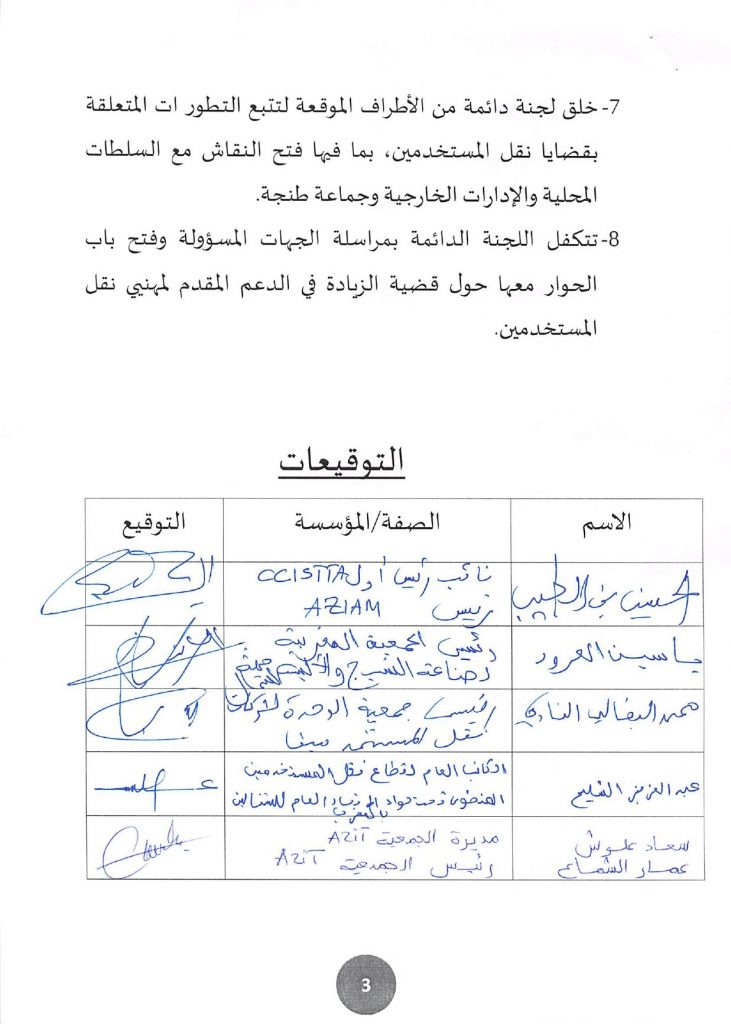 7- خلق لجنة دائمة من الأطراف الموقعة لتتبع التطور ات المتعلقة
بقضايا نقل المستخدمين، بما فيها فتح النقاش مع السلطات
المحلية والإدارات الخارجية وجماعة طنجة.
8- تتكفل اللجنة الدائمة بمراسلة الجهات المسؤولة وفتح باب
الحوار معها حول قضية الزيادة في الدعم المقدم لمهنيي نقل
المستخدمين.
التوقيعات
الاسم الصفة/المؤسسة التوقيع
الحسين بن الطيب نائب رئيس أول CCISTTA
رئيس AZIAM
ياسين العرود رئيس الجمعية المغربية
لصناعة النسيج والألبسة
البقالي رئيس جمعية الوحدة لشركات
نقل
عبد العزيز الكاتب العام لقطاع نقل المستخدمين
العام للشغالين
بالمغرب
سعاد علوش مديرة الجمعية AZIT
عمار الشماع رئيس الجمعية AZIT
3